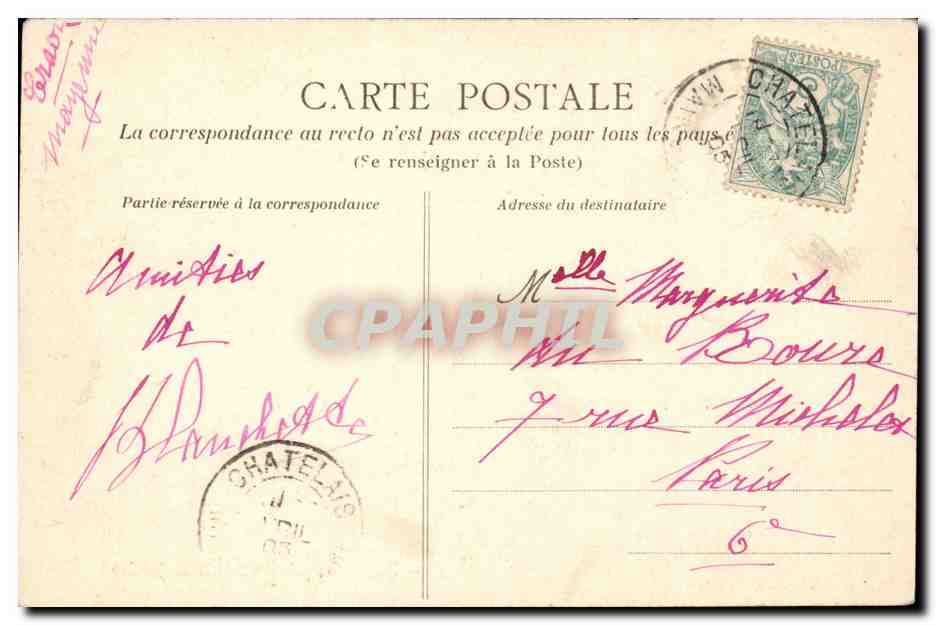 Mayenne
CARTE POSTALE
La correspondance au recto n'est pas acceptée pour tous les pays é
(Se renseigner à la Poste)
Partie réservée à la correspondance
Adresse du destinataire
POSTES
CHATEL
05
Amitiés
de
Blanchette
Melle Marguerite
du Bourc
7 rue Michelet
Paris
6e
CHATELAIS
05
CPAPHIL